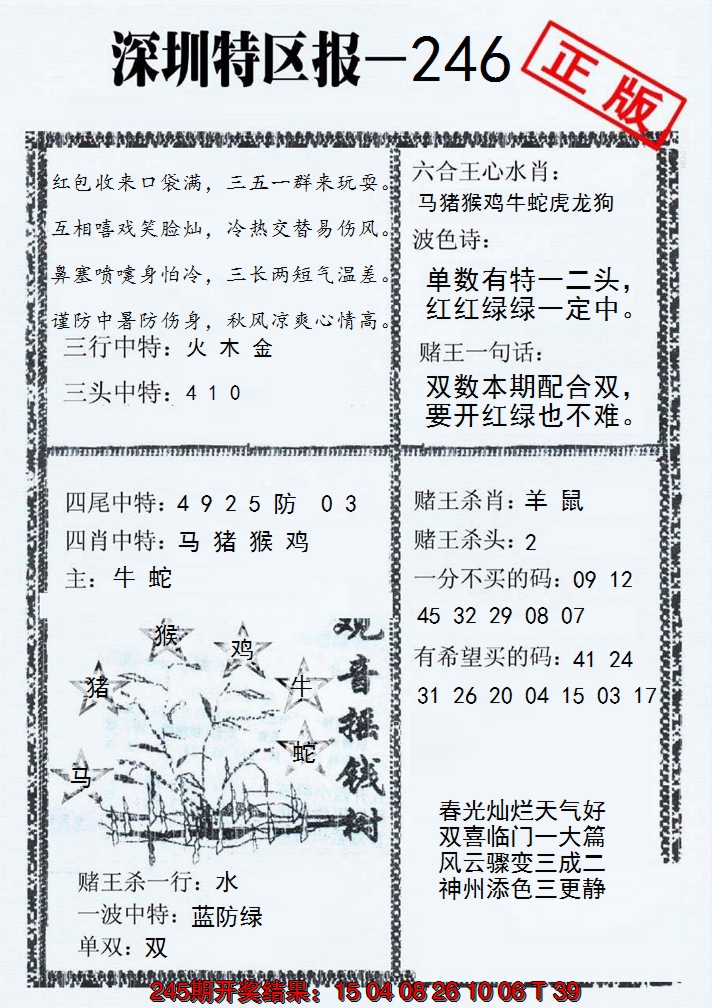 深圳特区报-246
正版
红包收来口袋满，三五一群来玩耍。
互相嘻戏笑脸灿，冷热交替易伤风。
鼻塞喷嚏身怕冷，三长两短气温差。
谨防中暑防伤身，秋风凉爽心情高。
三行中特：火 木 金
三头中特：4 1 0
六合王心水肖：
马猪猴鸡牛蛇虎龙狗
波色诗：
单数有特一二头，
红红绿绿一定中。
赌王一句话：
双数本期配合双，
要开红绿也不难。
四尾中特：4 9 2 5 防 0 3
四肖中特：马 猪 猴 鸡
主：牛 蛇
猴
鸡
猪
牛
蛇
马
观音摇钱树
赌王杀一行：水
一波中特：蓝防绿
单双：双
赌王杀肖：羊 鼠
赌王杀头：2
一分不买的码：09 12
45 32 29 08 07
有希望买的码：41 24
31 26 20 04 15 03 17
春光灿烂天气好
双喜临门一大篇
风云骤变三成二
神州添色三更静
245期开奖结果：15 04 08 26 10 06 T 39